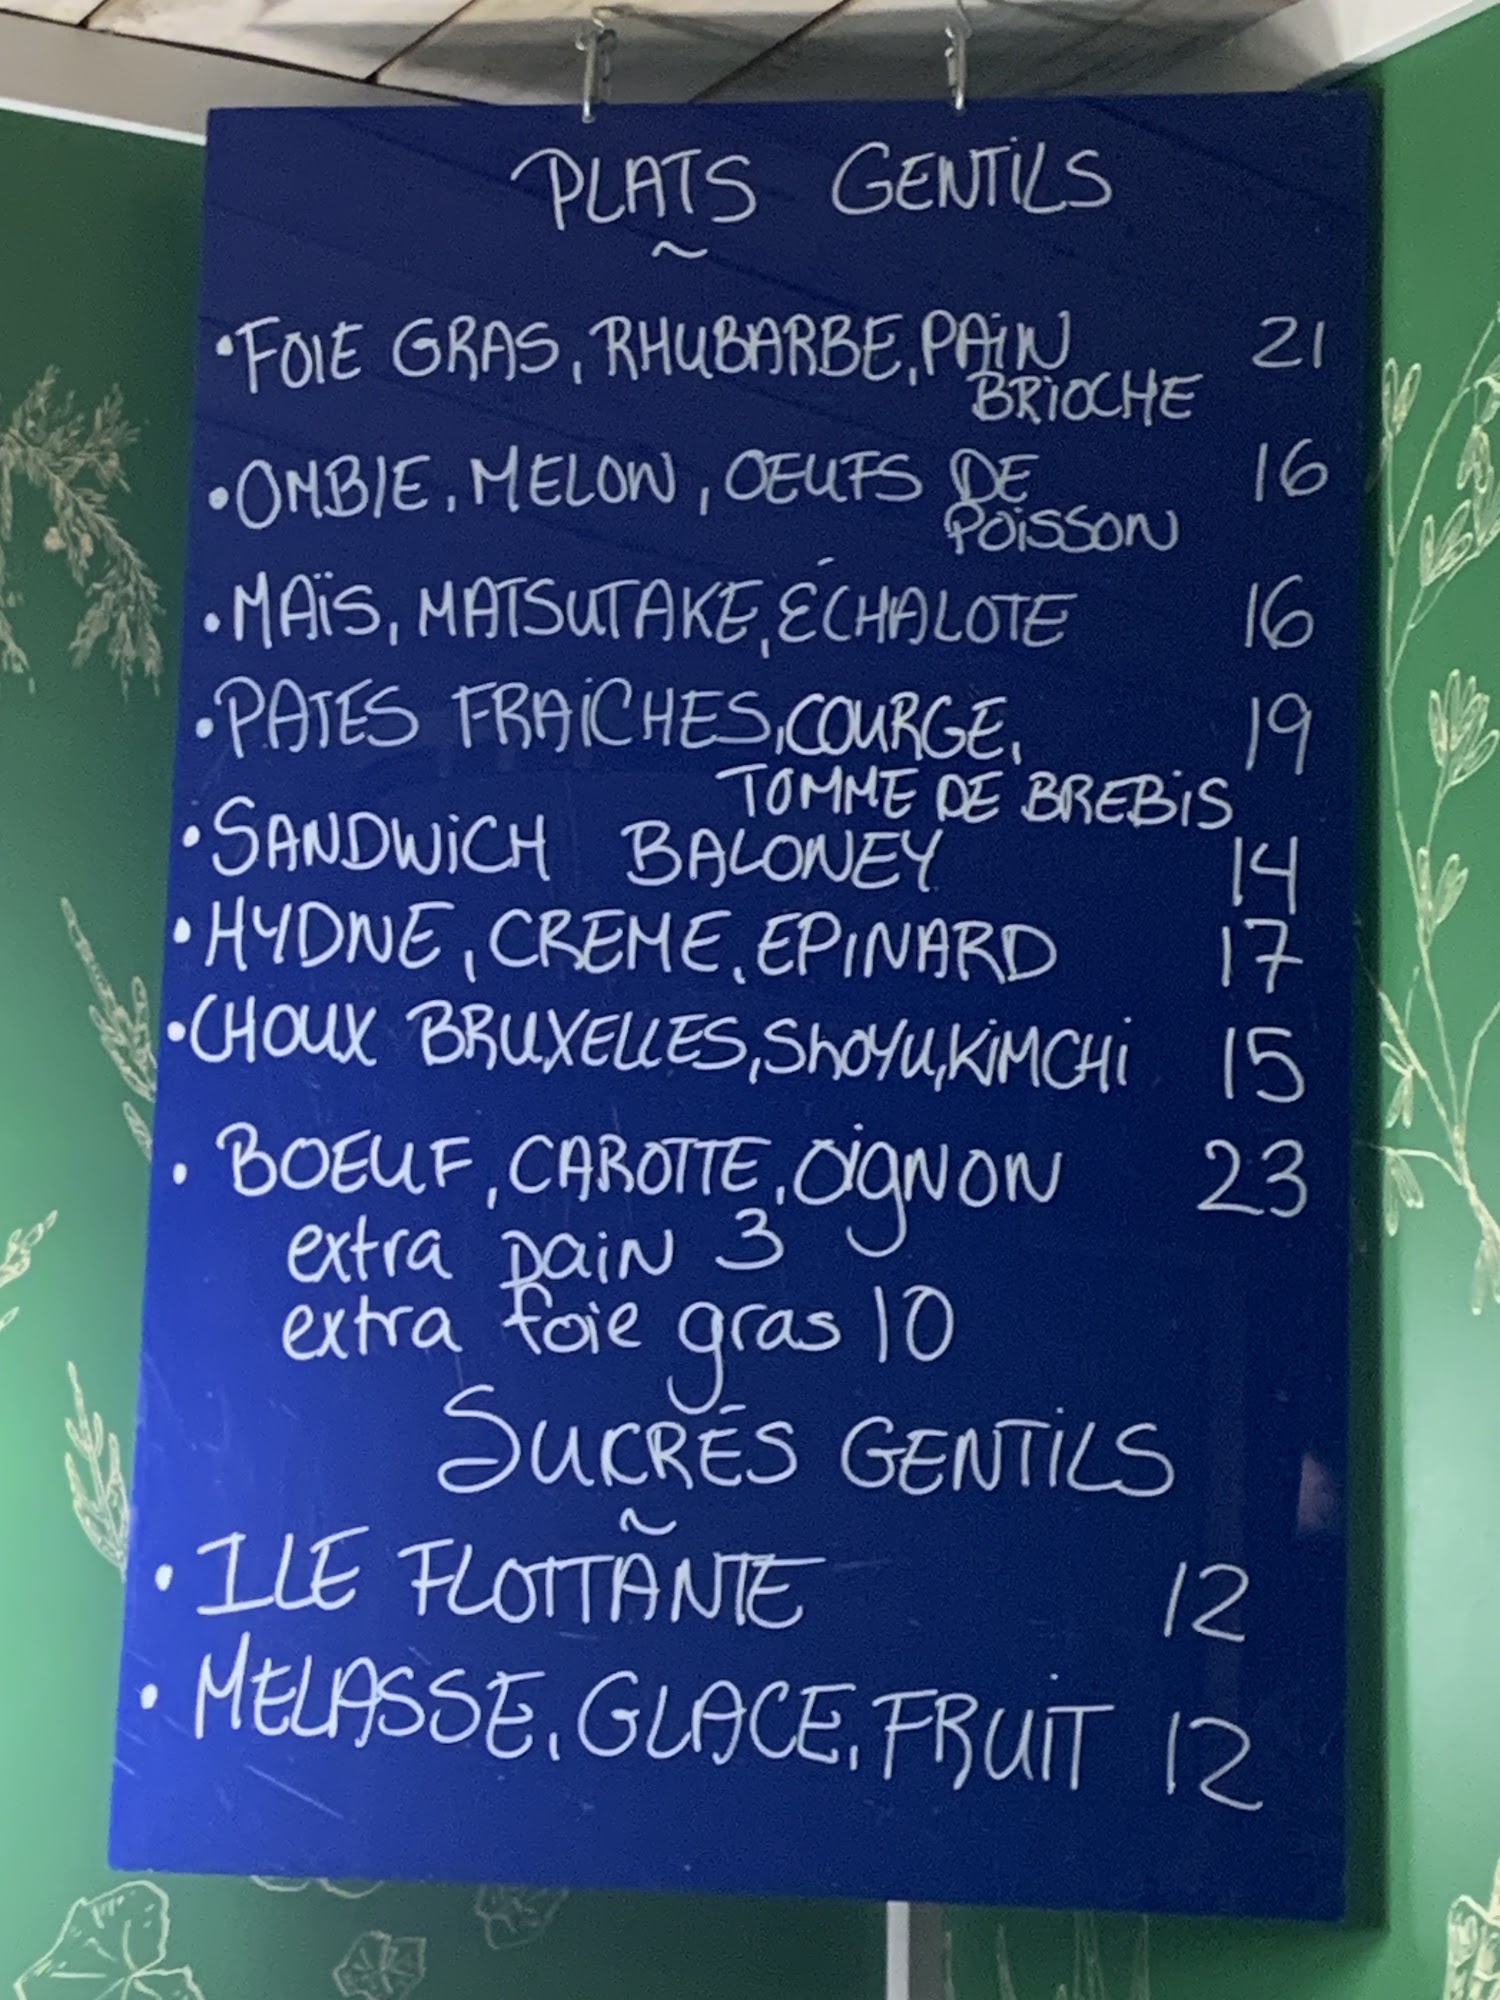 PLATS GENTILS
~
•FOIE GRAS, RHUBARBE, PAIN 21
BRIOCHE
•OMBLE, MELON, OEUFS DE 16
POISSON
•MAÏS, MATSUTAKE, ÉCHALOTE 16
•PATES FRAICHES, COURGE, 19
TOMME DE BREBIS
•SANDWICH BALONEY 14
•HYDNE, CREME, EPINARD 17
•CHOUX BRUXELLES, ShOYU, KIMCHI 15
• BOEUF, CAROTTE, OIgNON 23
extra paiN 3
extra foie gras 10
SUCRÉS GENTILS
~
• ILE FLOTTANTE 12
• MELASSE, GLACE, FRUIT 12